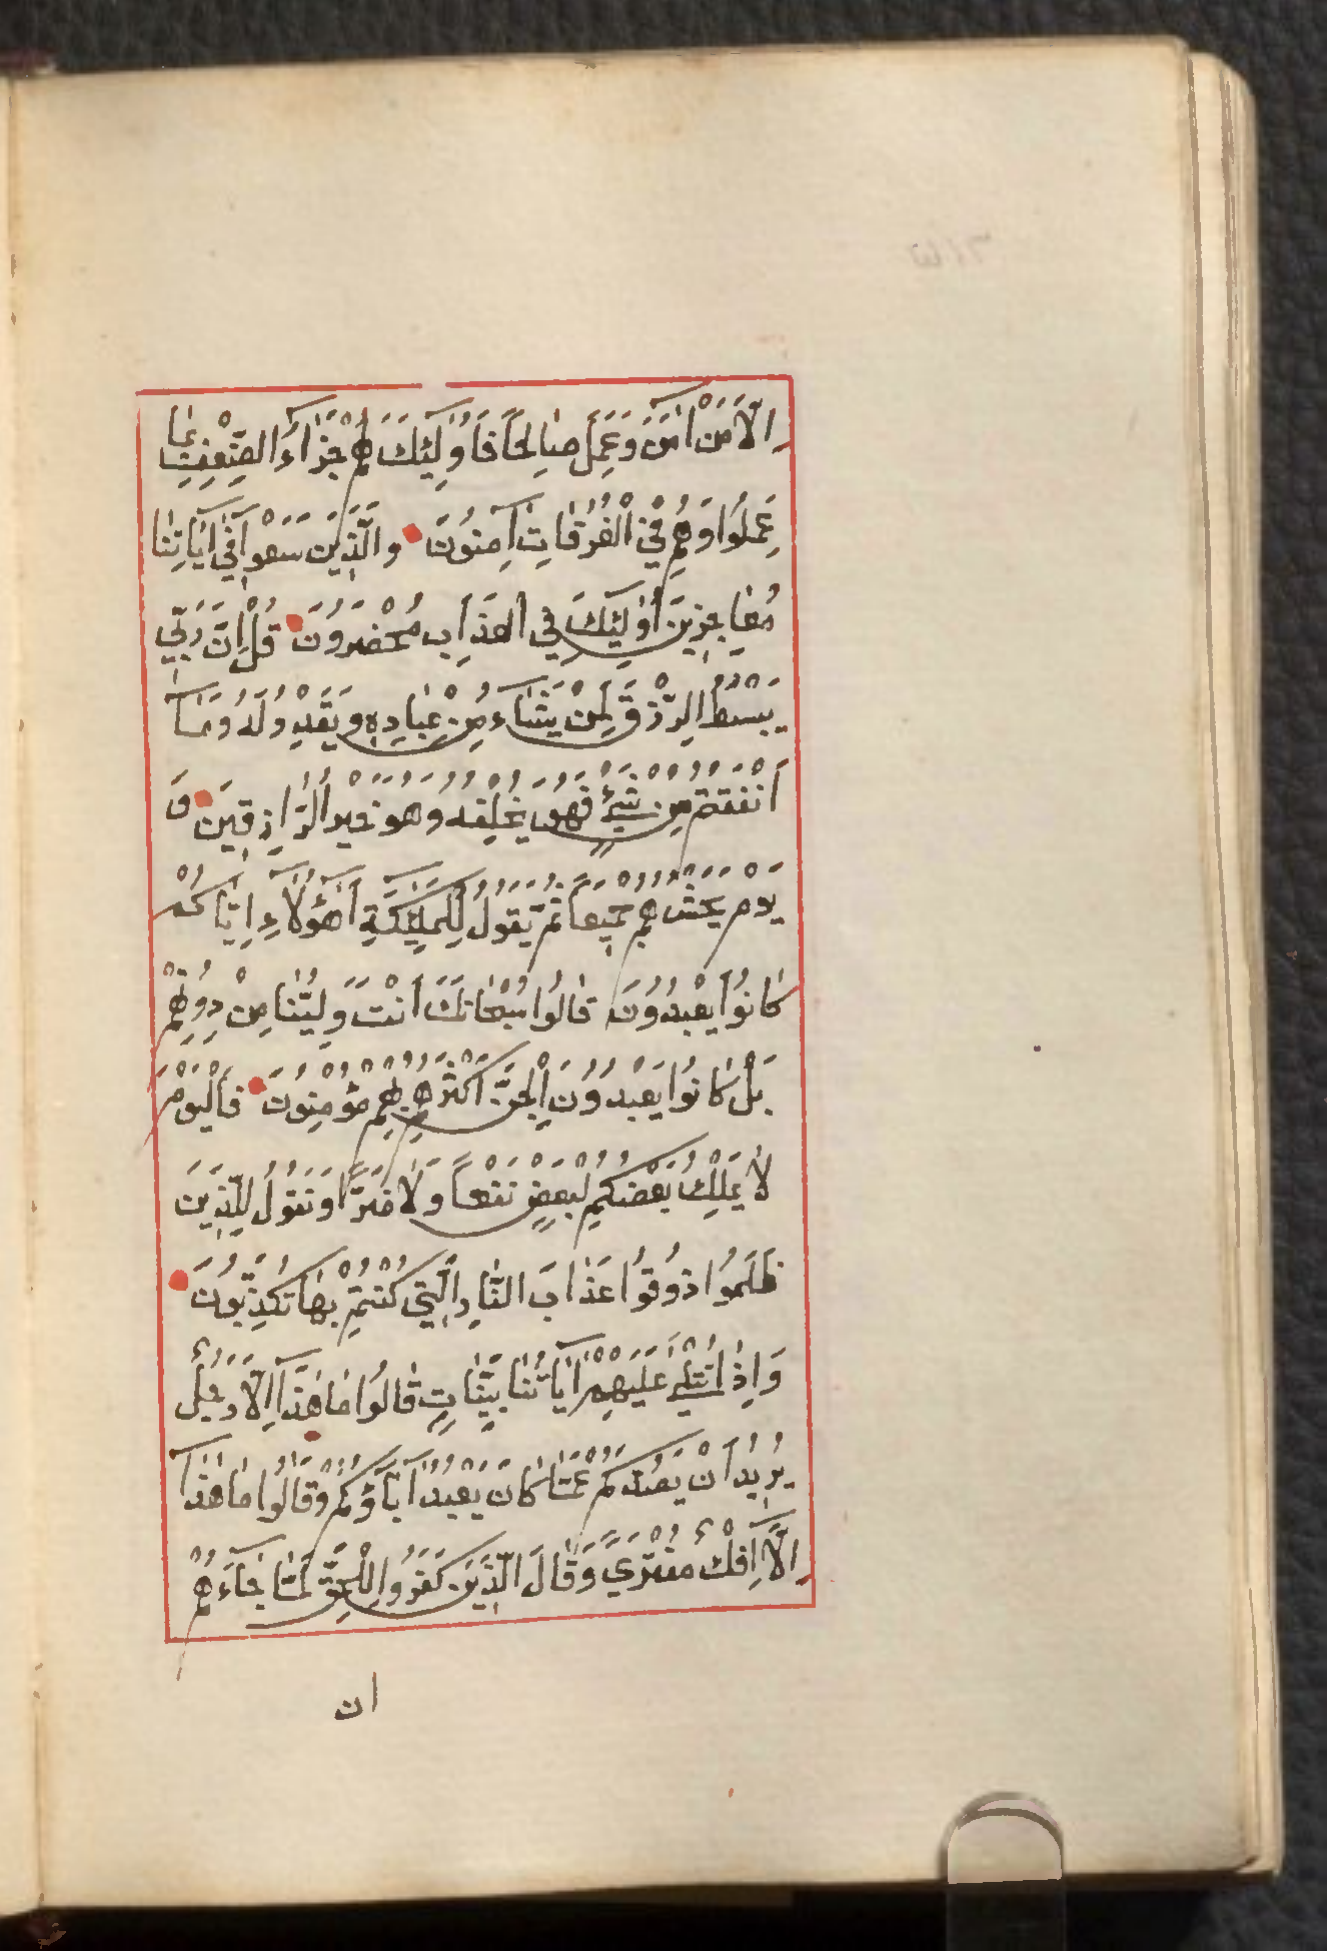 اِلَّا مَنْ اٰمَنَ وَعَمِلَ صٰالِحًا فَاُولٰٓئِكَ لَهُمْ جَزٰٓاءُ الضِّعْفِ بِمٰا
عَمِلُوا وَهُمْ فِي الْغُرُفٰاتِ اٰمِنُونَ وَالَّذِينَ سَعَوْا فِٓي اٰيٰاتِنٰا
مُعٰاجِزِينَ اُولٰٓئِكَ فِي الْعَذَابِ مُحْضَرُونَ قُلْ اِنَّ رَبِّي
يَبْسُطُ الرِّزْقَ لِمَنْ يَشٰٓاءُ مِنْ عِبٰادِهِ وَيَقْدِرُ لَهُ وَمٰٓا
اَنْفَقْتُمْ مِنْ شَيْءٍ فَهُوَ يُخْلِفُهُ وَهُوَ خَيْرُ الرّٰازِقِينَ وَ
يَوْمَ يَحْشُرُهُمْ جَمِيعًا ثُمَّ يَقُولُ لِلْمَلٰٓئِكَةِ اَهٰٓؤُلَآءِ اِيّٰاكُمْ
كٰانُوا يَعْبُدُونَ قٰالُوا سُبْحٰانَكَ اَنْتَ وَلِيُّنٰا مِنْ دُونِهِمْ
بَلْ كٰانُوا يَعْبُدُونَ الْجِنَّ اَكْثَرُهُمْ بِهِمْ مُؤْمِنُونَ فَالْيَوْمَ
لٰا يَمْلِكُ بَعْضُكُمْ لِبَعْضٍ نَفْعًا وَلٰا ضَرًّا وَنَقُولُ لِلَّذِينَ
ظَلَمُوا ذُوقُوا عَذٰابَ النّٰارِ الَّتِي كُنْتُمْ بِهٰا تُكَذِّبُونَ
وَاِذٰا تُتْلٰى عَلَيْهِمْ اٰيٰاتُنٰا بَيِّنٰاتٍ قٰالُوا مٰا هٰذَٓا اِلَّا رَجُلٌ
يُرِيدُ اَنْ يَصُدَّكُمْ عَمّٰا كٰانَ يَعْبُدُ اٰبٰٓاؤُكُمْ وَقٰالُوا مٰا هٰذَٓا
اِلَّٓا اِفْكٌ مُفْتَرًى وَقٰالَ الَّذِينَ كَفَرُوا لِلْحَقِّ لَمّٰا جٰٓاءَهُمْ
ان